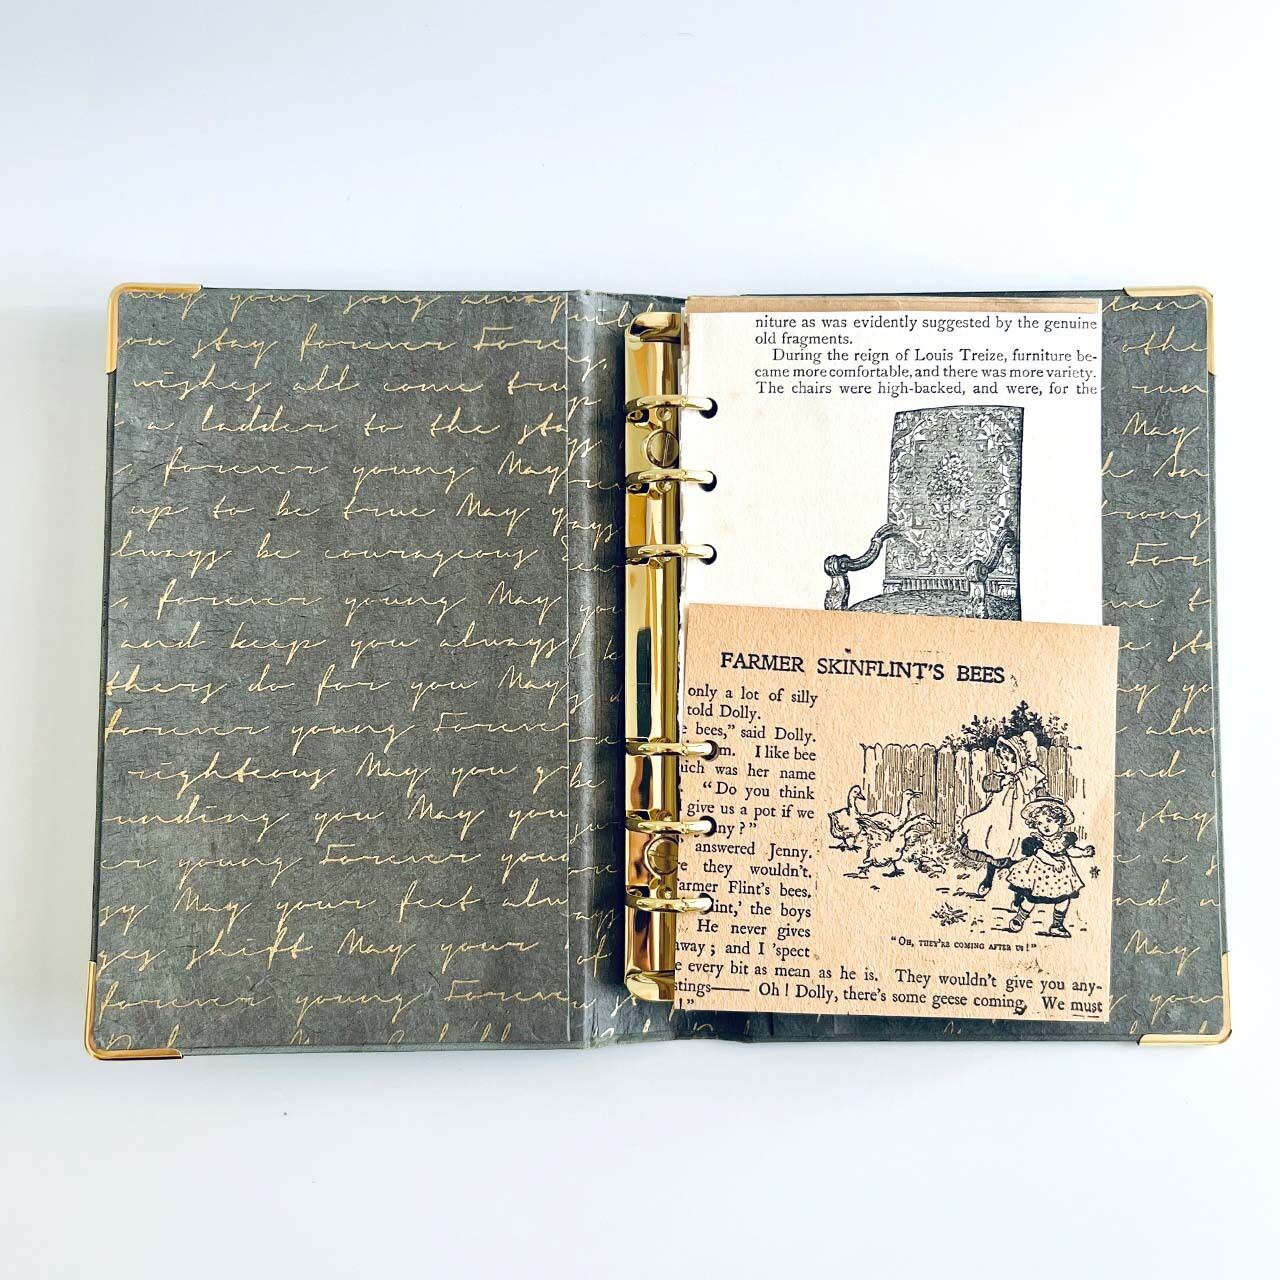 may your song always
you stay forever Forever
wishes all come true
a ladder to the sta
forever young May
up to be true May
always be courageous
forever young May
and keep you always
others do for you May
forever young Forever
righteous May you g
unding you May you
er young Forever your
May your feet always
ges shift May your
forever young Forever
niture as was evidently suggested by the genuine
old fragments.
During the reign of Louis Treize, furniture be-
came more comfortable, and there was more variety.
The chairs were high-backed, and were, for the
FARMER SKINFLINT'S BEES
only a lot of silly
told Dolly.
bees," said Dolly.
m. I like bee
hich was her name
"Do you think
give us a pot if we
ny?"
answered Jenny.
they wouldn't.
armer Flint's bees.
lint,' the boys
He never gives
away; and I 'spect
"OH, THEY'RE COMING AFTER US!"
e every bit as mean as he is. They wouldn't give you any-
stings—— Oh! Dolly, there's some geese coming. We must
!"
othe
run
May
rong
For